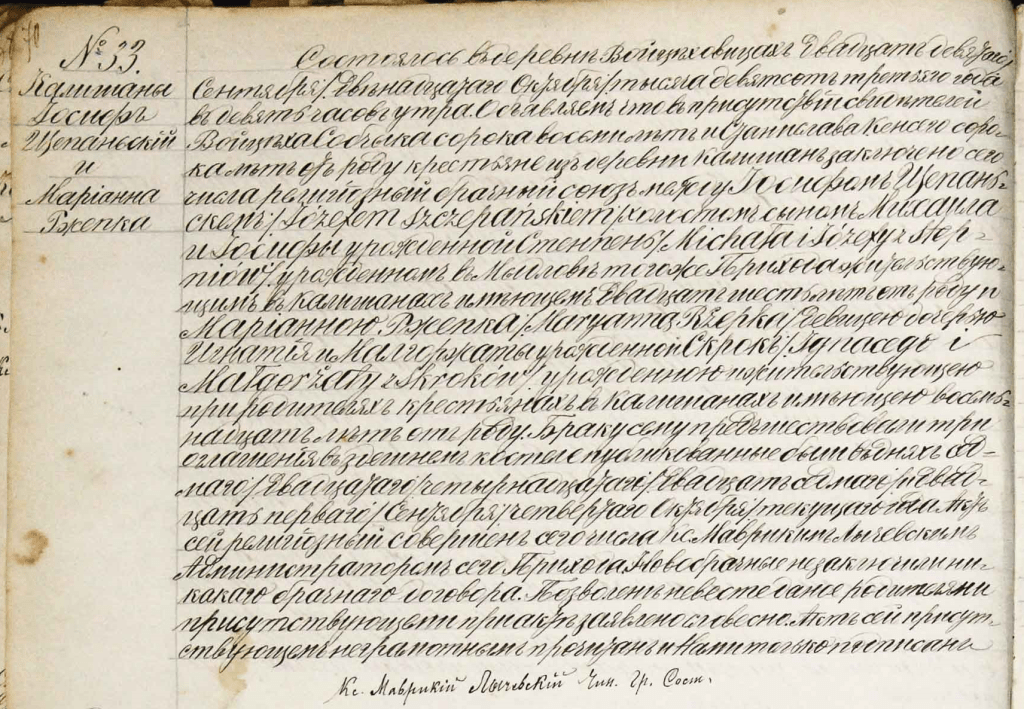 70
№ 33.
Калишаны
Іосифъ
Щепаньскій
и
Маріанна
Ржепка
Состоялось въ деревнѣ Войцѣховицахъ двадцать девятаго
Сентября /двѣнадцатаго Октября/ тысяча девятсотъ третьяго года
въ девять часовъ утра. Объявляемъ что въ присутствіи свидѣтелей
Войцѣха сорока восьми лѣтъ и Станислава соро-
ка лѣтъ отъ роду крестьяне изъ деревни Калишанъ заключено сего
числа религіозный брачный союзъ между Іосифомъ Щепань-
скемъ /Józefem Szczepańskiem/ холостомъ сыномъ Михаила
и Іосифы урожденной Стемпень /Michała i Józefy z Stęp-
niów/ урожденномъ въ Мыловѣ того же Прихода жительствую-
щимъ въ Калишанахъ имѣющемъ двадцать шесть лѣтъ отъ роду и
Маріанною Ржепка /Maryanną Rzepką/ девицею дочерью
Игнатія и Малгоржаты урожденной Скрокъ /Ignacego i
Małgorzaty z Skroków/ урожденною и жительствующею
при родителяхъ крестьянахъ въ Калишанахъ имѣющею восемь-
надцать лѣтъ отъ роду. Браку сему предшествовали три
оглашенія въ здешнемъ костеле публикованные были въ дняхъ сед-
маго /двадцатаго/ четырнадцатаго /двадцать седмаго/ и двад-
цать перваго /Сентября/ четвертаго Октября/ текущаго года Актъ
сей религіозный совершенъ сего числа Кс. Маврикимъ Лычевскимъ
Администраторомъ сего Прихода Новобрачные незаключили ни-
какаго брачнаго договора. Позволенъ невесте данное родителями
присутствующими при актѣ заявлено словесно. Актъ сей присут-
ствующемъ неграмотнымъ прочитанъ и Нами только подписанъ
Кс. Маврикій Лычевскій Чин. Гр. Сост.